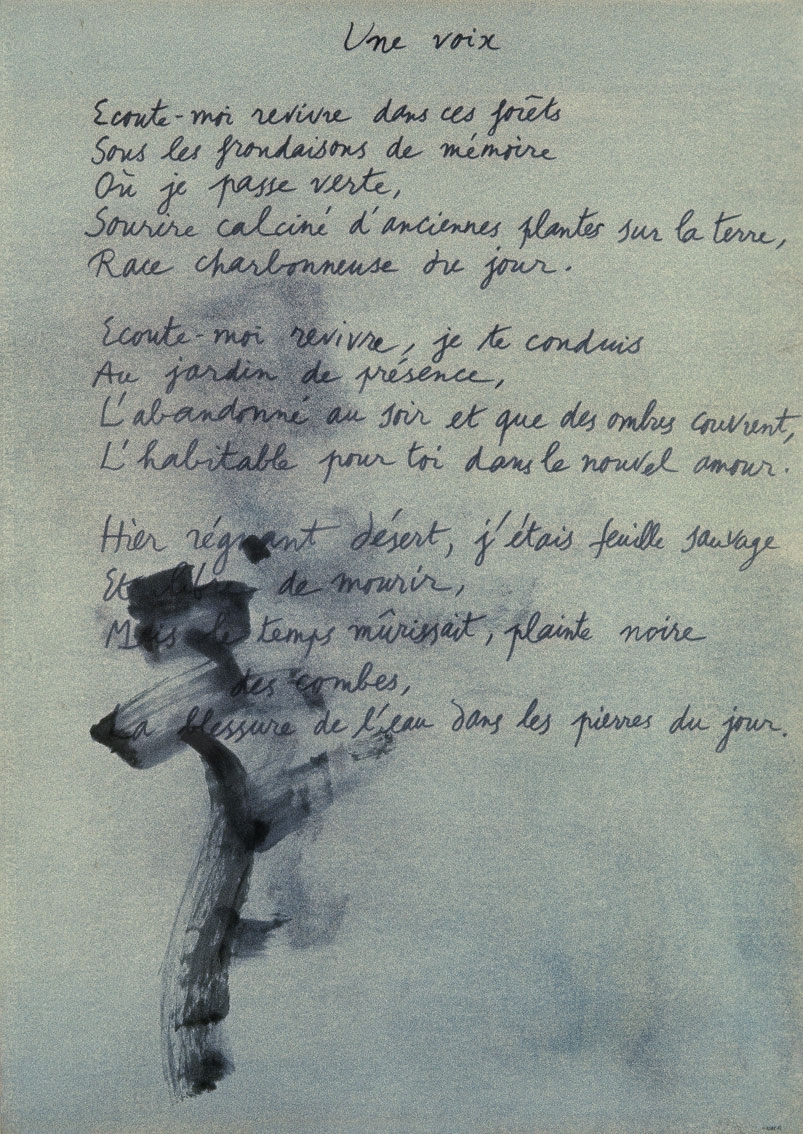 Une voix
Ecoute-moi revivre dans ces forêts
Sous les frondaisons de mémoire
Où je passe verte,
Sourire calciné d'anciennes plantes sur la terre,
Race charbonneuse du jour.
Ecoute-moi revivre, je te conduis
Au jardin de présence,
L'abandonné au soir et que des ombres couvrent,
L'habitable pour toi dans le nouvel amour.
Hier régnant désert, j'étais feuille sauvage
Et libre de mourir,
Mais le temps mûrissait, plainte noire
des combes,
La blessure de l'eau dans les pierres du jour.